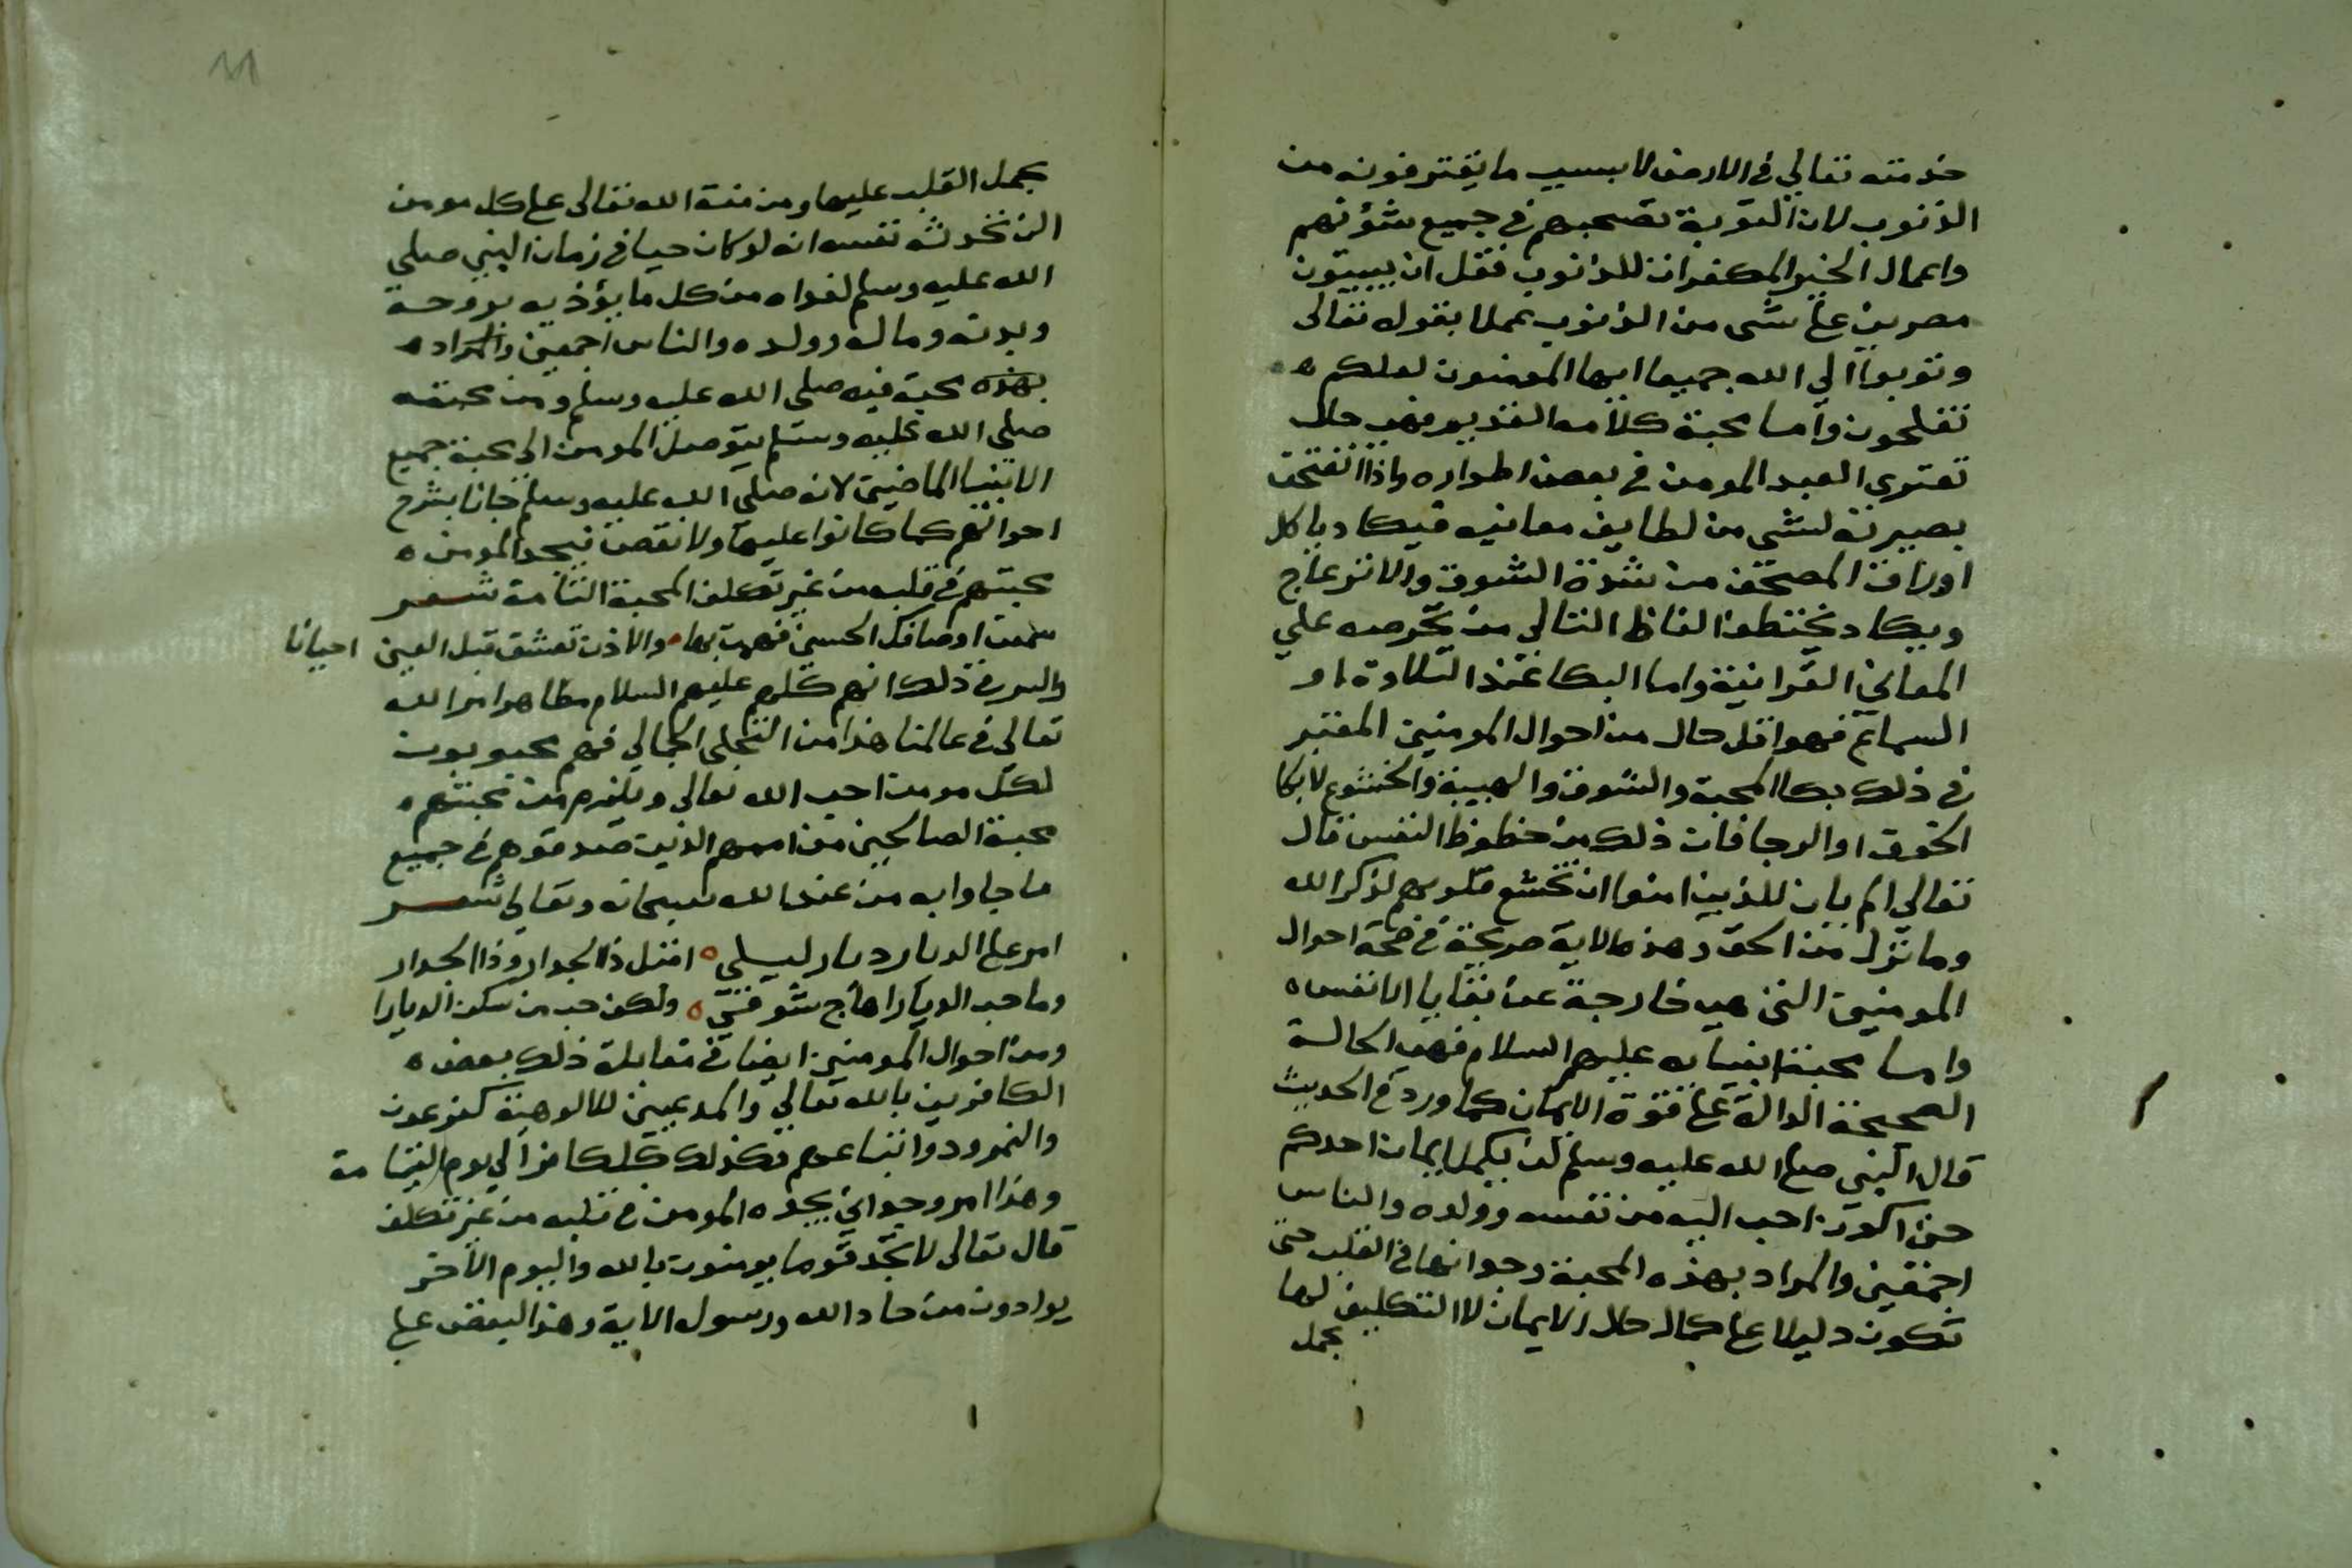 خدمته تعالي في الارض لا بسبب ما يقترفونه من
الذنوب لان التوبة تصحبهم في جميع شؤنهم
واعمال الخير المكفرات للذنوب فقل ان يبيتون
مصرين علي شي من الذنوب عملا بقوله تعالى
وتوبوا الي الله جميعا ايها المومنون لعلكم ه
تفلحون واما محبة كلامه القديم فهي حال
تعتري العبد المومن في بعض اطواره واذا انفتحت
بصيرته لشي من لطايف معانيه فيكاد ياكل
اوراق المصحف من شدة الشوق والانزعاج
ويكاد يختطف الفاظ التالي من حرصه علي
المعاني القرانية واما البكا عند التلاوة او
السماع فهو اقل حال من احوال المومنين المعتبر
في ذلك بكا المحبة والشوق والهيبة والخشوع لا بكا
الخوف او الرجا فان ذلك من حظوظ النفس قال
تعالي الم يان للذين امنوا ان تخشع قلوبهم لذكر الله
وما نزل من الحق وهذه الاية صريحة في صحة احوال
المومنين التي هي خارجة عن بقايا الانفس ه
واما محبة انبيايه عليهم السلام فهي الحالة
الصحيحة الدالة علي قوة الايمان كما ورد في الحديث
قال النبي صلي الله عليه وسلم لن يكمل ايمان احدكم
حتى اكون احب اليه من نفسه وولده والناس
اجمعين والمراد بهذه المحبة وجدانها في القلب حتى
تكون دليلا علي كمال حال الايمان لا التكليف لها
بحمل
11
بحمل القلب عليها ومن منة الله تعالى علي كل مومن
ان تحدثه نفسه انه لو كان حيا في زمان النبي صلي
الله عليه وسلم لفداه من كل ما يؤذيه بروحه
وبدنه وماله وولده والناس اجمعين والمراد ه
بهذه محبة فيه صلى الله عليه وسلم ومن محبته
صلي الله عليه وسلم يتوصل المومن الى محبة جميع
الانبيا الماضين لانه صلي الله عليه وسلم جانا بشرح
احوالهم كما كانوا عليها ولا نقص فيجد المومن ه
محبتهم في قلبه من غير تكلف المحبة التامة شعر
سمعت اوصافك الحسنى فهمت بها والاذن تعشق قبل العين احيانا
والسر في ذلك انهم كلهم عليهم السلام مظاهر امر الله
تعالي في عالمنا هذا من التجلي الجمالي فهم محبوبون
لكل مومن احب الله تعالي ويلزم من محبتهم ه
محبة الصالحين من اممهم الذين صدقوهم في جميع
ما جاوا به من عند الله سبحانه وتعالي شعر
امر علي الديار ديار ليلي ه اقبل ذا الجدار وذا الجدار
وما حب الديار اهاج شوقي ه ولكن حب من سكن الديارا
ومن احوال المومنين ايضا في مقابلة ذلك بعض ه
الكافرين بالله تعالي والمدعيين للالوهية كفرعون
والنمرود واتباعهم وكذلك كل كافر الي يوم القيامة
وهذا امر وجداني يجده المومن في قلبه من غير تكلف
قال تعالى لا تجد قوما يومنون بالله واليوم الآخر
يوادون من حاد الله ورسوله الاية وهذا البغض علي